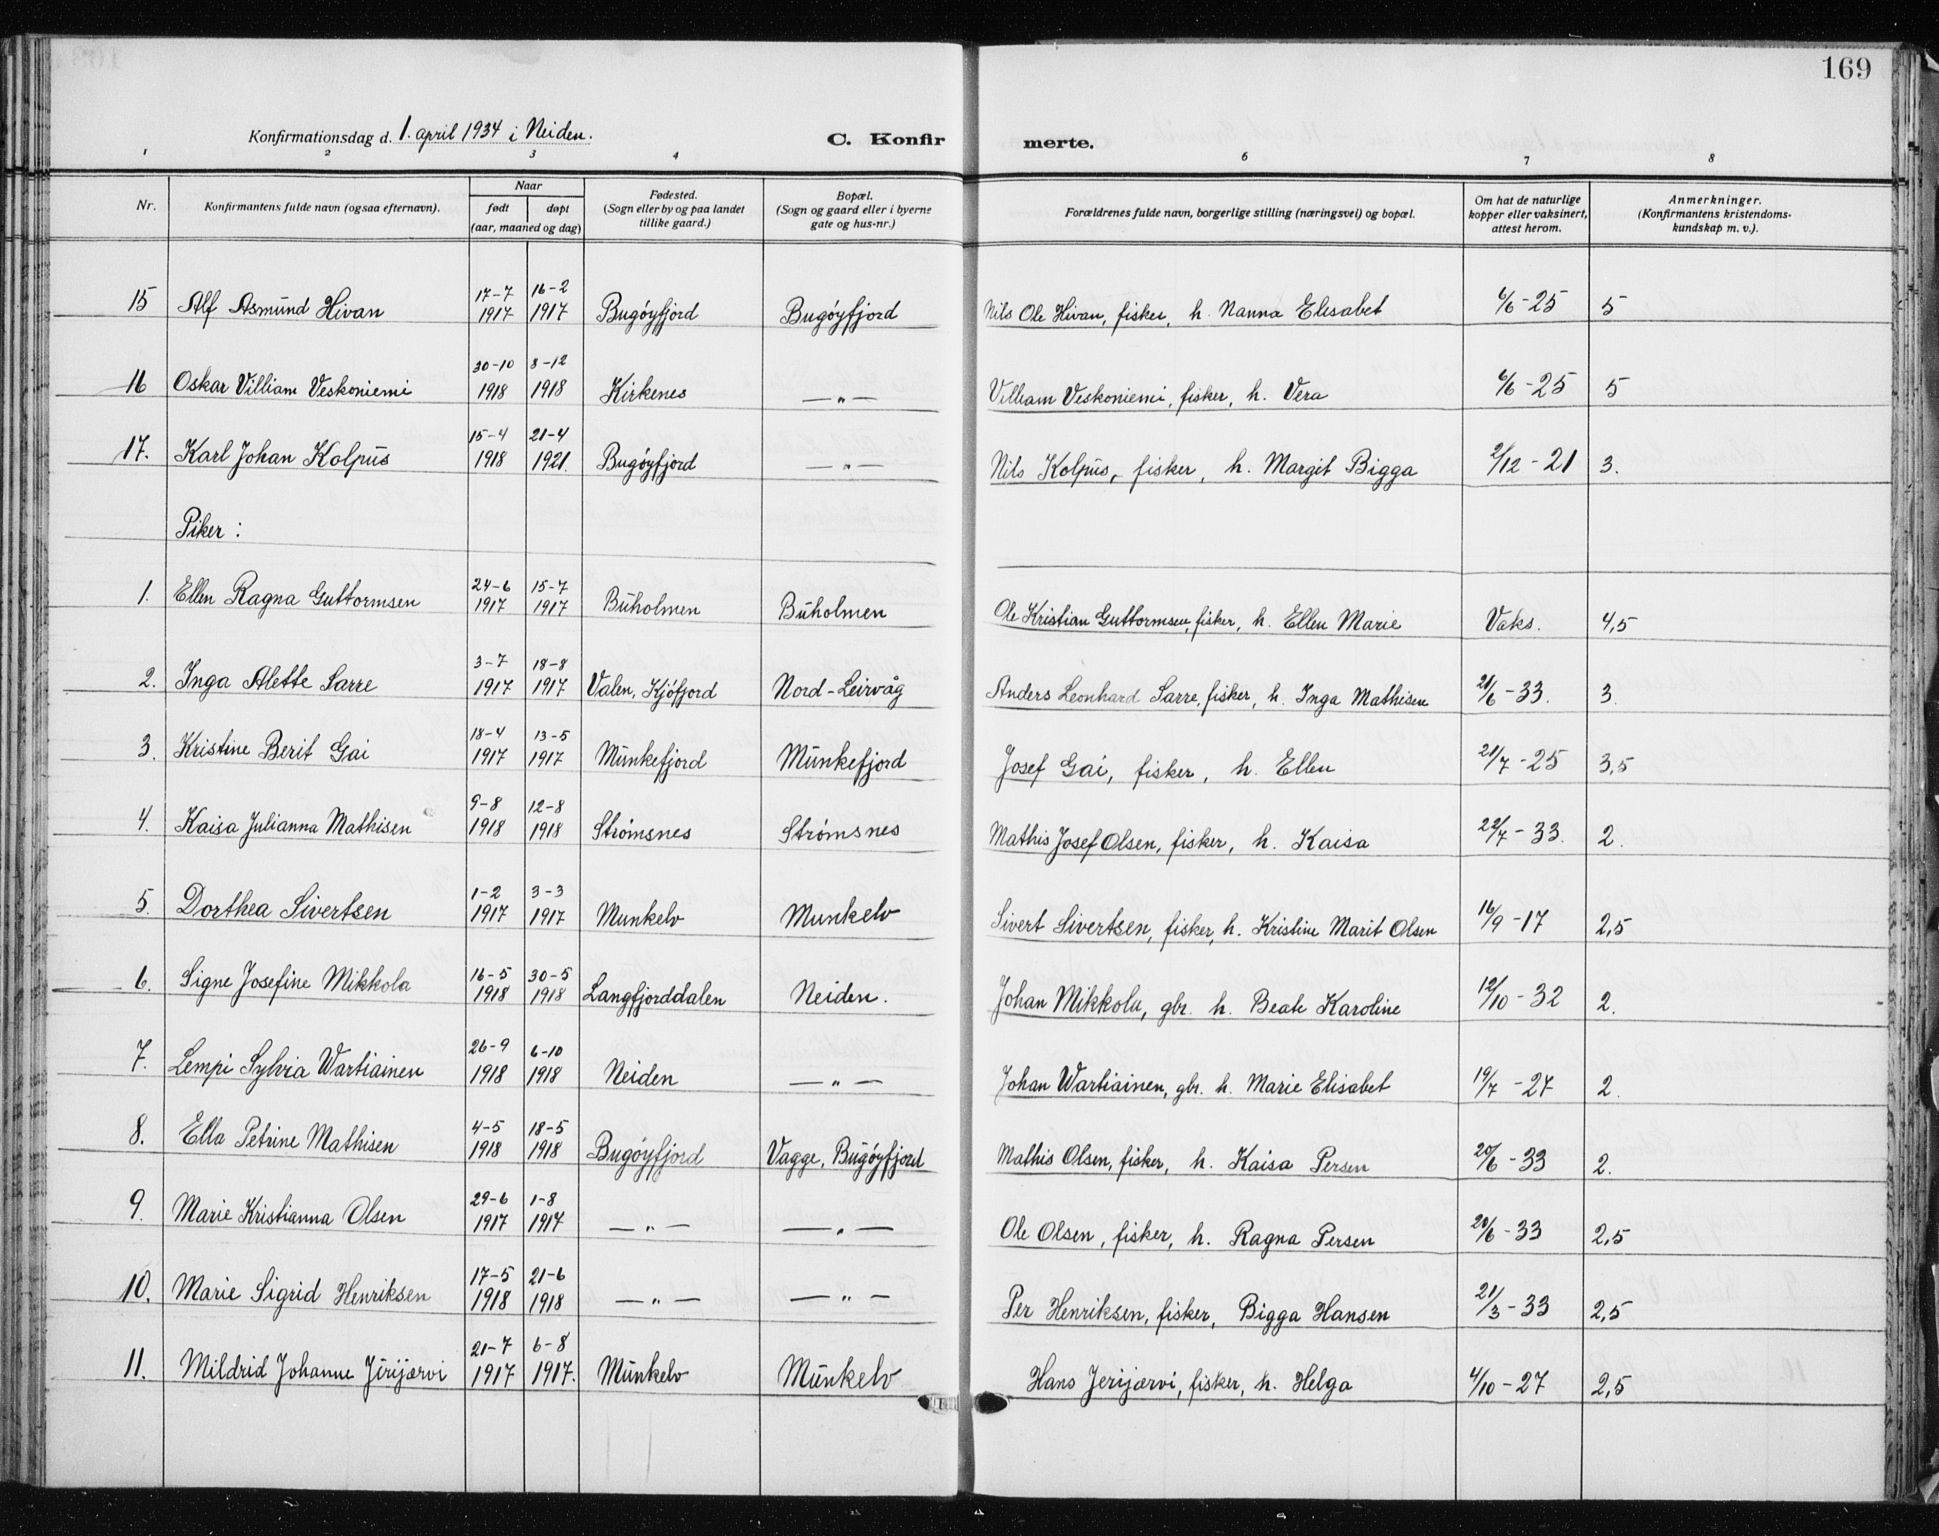 169
Konfirmationsdag d. 1. april 1934 i Neiden. C. Konfirmerte.
1 2 3 4 6 7 8
Nr. Konfirmantens fulde navn (ogsaa efternavn). Naar født døpt (aar, maaned og dag) Fødested. (Sogn eller by og paa landet tillike gaard.) Bopæl. (Sogn og gaard eller i byerne gate og hus-nr.) Forældrenes fulde navn, borgerlige stilling (næringsvei) og bopæl. Om hat de naturlige kopper eller vaksinert, attest herom. Anmerkninger. (Konfirmantens kristendomskundskap m. v.).
15 Alf Asmund Hivan 17-7 1917 16-2 1917 Bugøyfjord Bugøyfjord Nils Ole Hivan, fisker, h. Nanna Elisabet 6/6-25 5
16 Oskar Villiam Veskoniemi 30-10 1918 8-12 1918 Kirkenes —"— Villiam Veskoniemi, fisker, h. Vera 6/6-25 5
17. Karl Johan Kolpus 15-4 1918 21-4 1921. Bugøyfjord —"— Nils Kolpus, fisker, h. Margit Bigga 2/12-21 3.
Piker:
1. Ellen Ragna Guttormsen 24-6 1917 15-7 1917 Buholmen Buholmen Ole Kristian Guttormsen, fisker, h. Ellen Marie Vaks. 4,5
2. Inga Alette Sarre 3-7 1917 18-8 1917 Valen, Kjøfjord Nord-Leirvåg Anders Leonhard Sarre, fisker, h. Inga Mathisen 21/6-33. 3.
3. Kristine Berit Gai 18-4 1917 13-5 1917 Munkefjord Munkefjord Josef Gai, fisker, h. Ellen 21/7-25 3,5
4. Kaisa Julianna Mathisen 9-8 1918 12-8 1918 Strømsnes Strømsnes Mathis Josef Olsen, fisker, h. Kaisa 22/7-33. 2.
5. Dorthea Sivertsen 1-2 1917 3-3 1917 Munkelv Munkelv Sivert Sivertsen, fisker, h. Kristine Marit Olsen 16/9-17 2,5
6. Signe Josefine Mikkola 16-5 1918 30-5 1918 Langfjorddalen Neiden. Johan Mikkola, gbr. h. Beate Karoline 12/10-32 2.
7. Lempi Sylvia Wartiainen 26-9 1918 6-10 1918 Neiden —"— Johan Wartiainen, gbr. h. Marie Elisabet 19/7-27 2.
8. Ella Petrine Mathisen 4-5 1918 18-5 1918 Bugøyfjord Vagge, Bugøyfjord Mathis Olsen, fisker, h. Kaisa Persen 20/6-33 2.
9. Marie Kristianna Olsen 29-6 1917 1-8 1917 —"— —"— Ole Olsen, fisker, h. Ragna Persen 20/6-33 2,5
10. Marie Sigrid Henriksen 17-5 1918 21-6 1918 —"— —"— Per Henriksen, fisker, Bigga Hansen 21/3-33 2,5
11. Mildrid Johanne Jirijærvi 21-7 1917 6-8 1917. Munkelv Munkelv Hans Jerijærvi, fisker, h. Helga 4/10-27 2,5